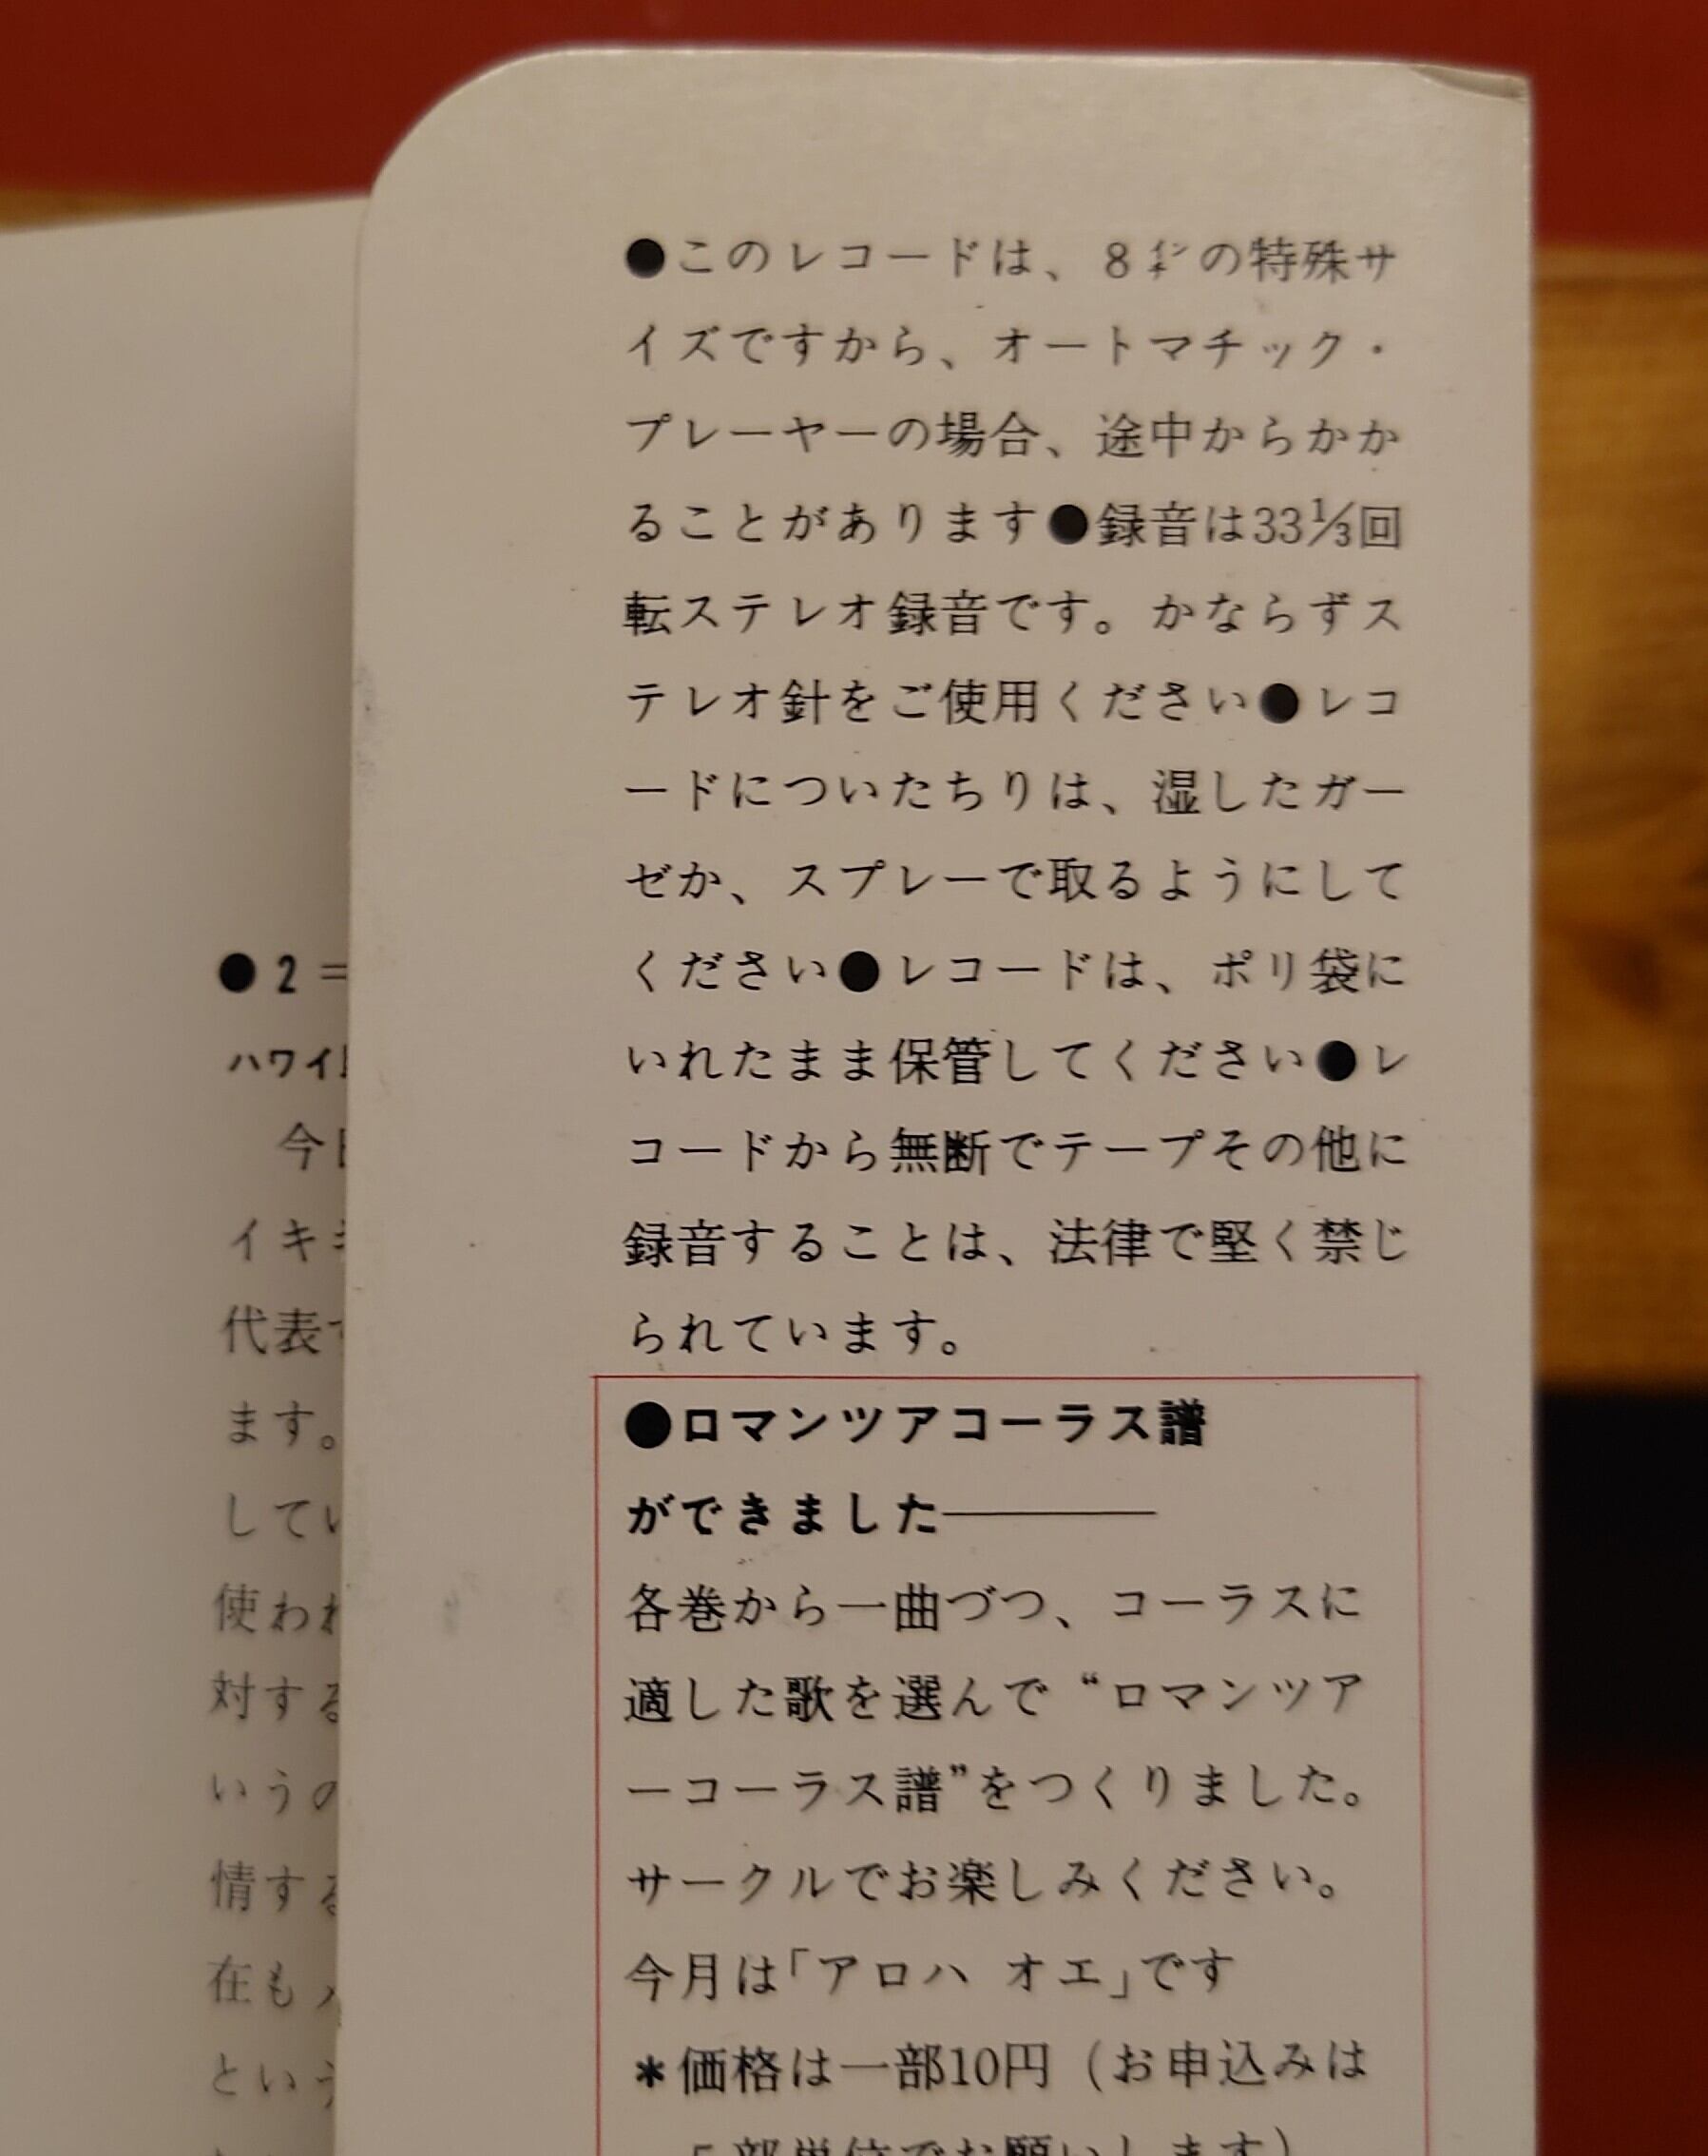 ●このレコードは、8㌅の特殊サ
イズですから、オートマチック・
プレーヤーの場合、途中からかか
ることがあります●録音は33⅓回
転ステレオ録音です。かならずス
テレオ針をご使用ください●レコ
ードについたちりは、湿したガー
ゼか、スプレーで取るようにして
ください●レコードは、ポリ袋に
いれたまま保管してください●レ
コードから無断でテープその他に
録音することは、法律で堅く禁じ
られています。
●ロマンツアコーラス譜
ができました――――
各巻から一曲づつ、コーラスに
適した歌を選んで“ロマンツア
ーコーラス譜”をつくりました。
サークルでお楽しみください。
今月は「アロハ オエ」です
＊価格は一部10円（お申込みは
5部単位でお願いします）
●2＝
ハワイ
今
イキ
代表
ます。
してい
使われ
対する
いうの
情する
在も
という